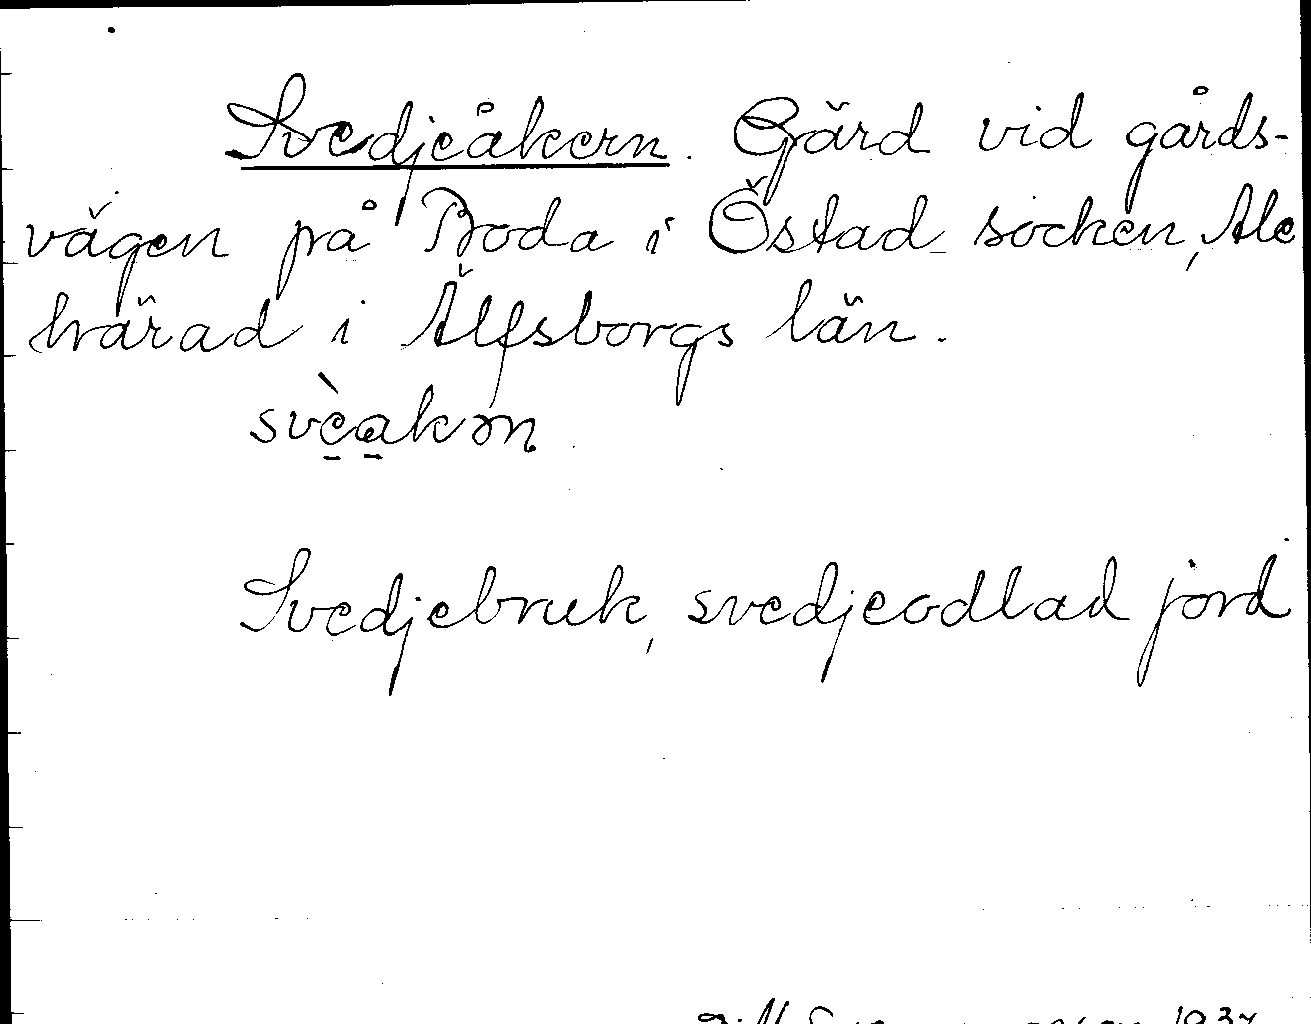 Svedjeåkern. Gärd vid gårds-
vägen på Boda i Östad socken, Ale
härad i Älfsborgs län.
svèakən
Svedjebruk, svedjeodlad jord